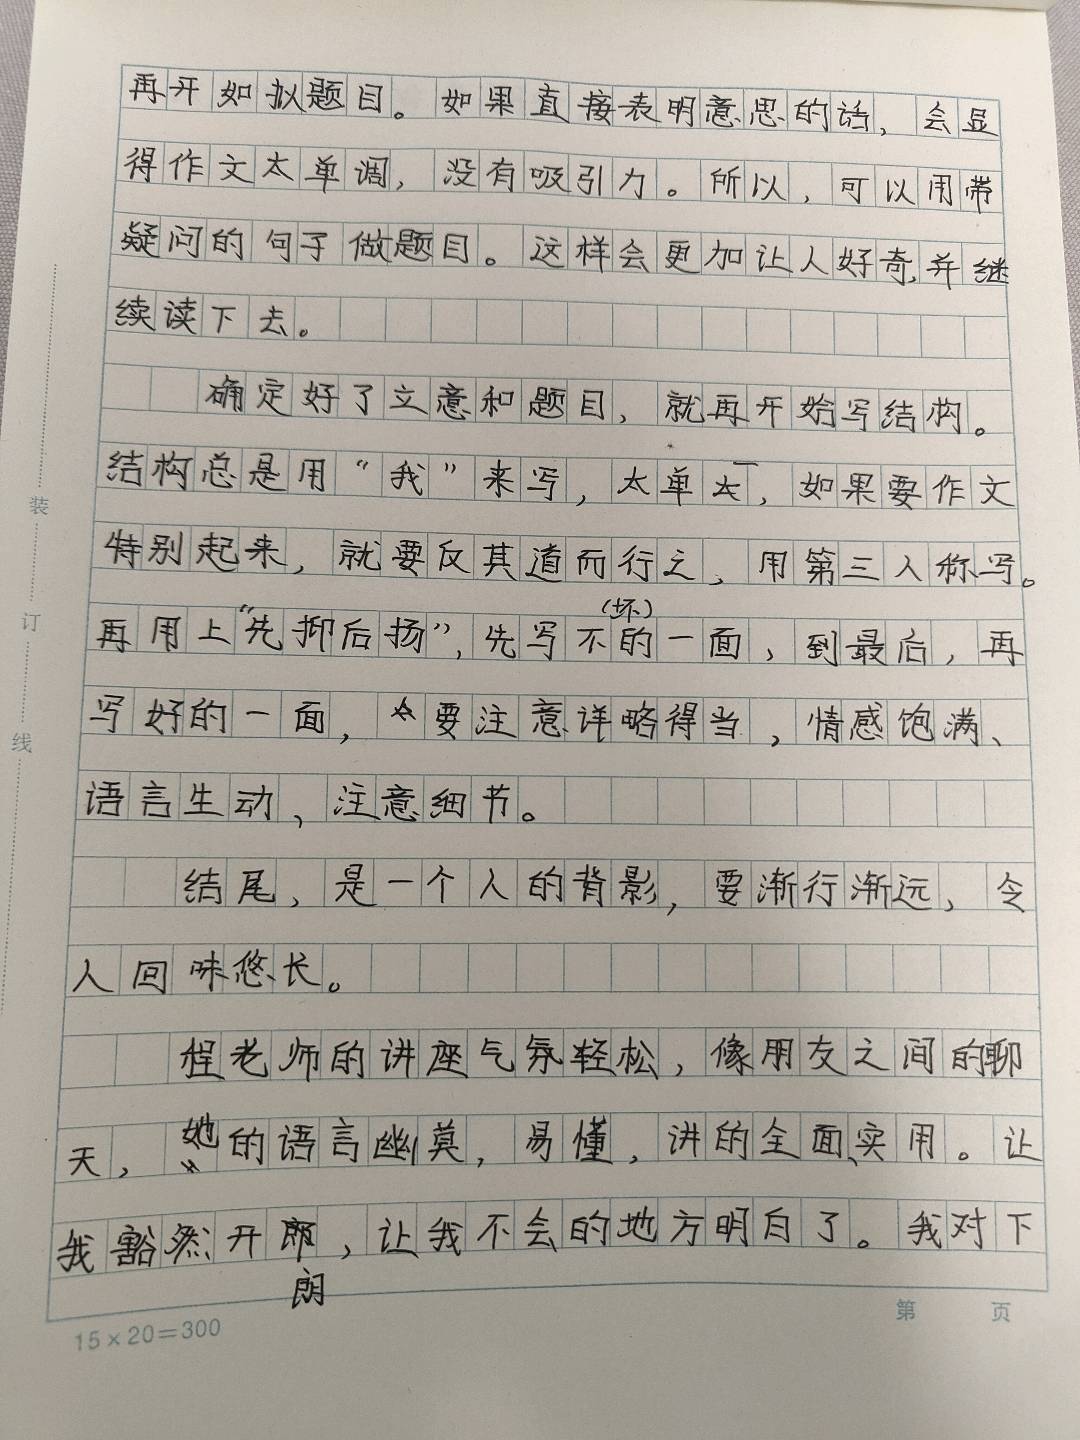 再开如拟题目。如果直接表明意思的话，会显
得作文太单调，没有吸引力。所以，可以用带
疑问的句子做题目。这样会更加让人好奇，并继
续读下去。
确定好了立意和题目，就再开始写结构。
结构总是用“我”来写，太单太，如果要作文
特别起来，就要反其道而行之，用第三人称写。
(坏)
再用上“先抑后扬”，先写不的一面，到最后，再
写好的一面，要注意详略得当，情感饱满、
语言生动，注意细节。
结尾，是一个人的背影，要渐行渐远，令
人回味悠长。
程老师的讲座气氛轻松，像朋友之间的聊
天，她的语言幽莫，易懂，讲的全面、实用。让
我豁然开郎，让我不会的地方明白了。我对下
朗
装
订
线
15×20=300
第 页